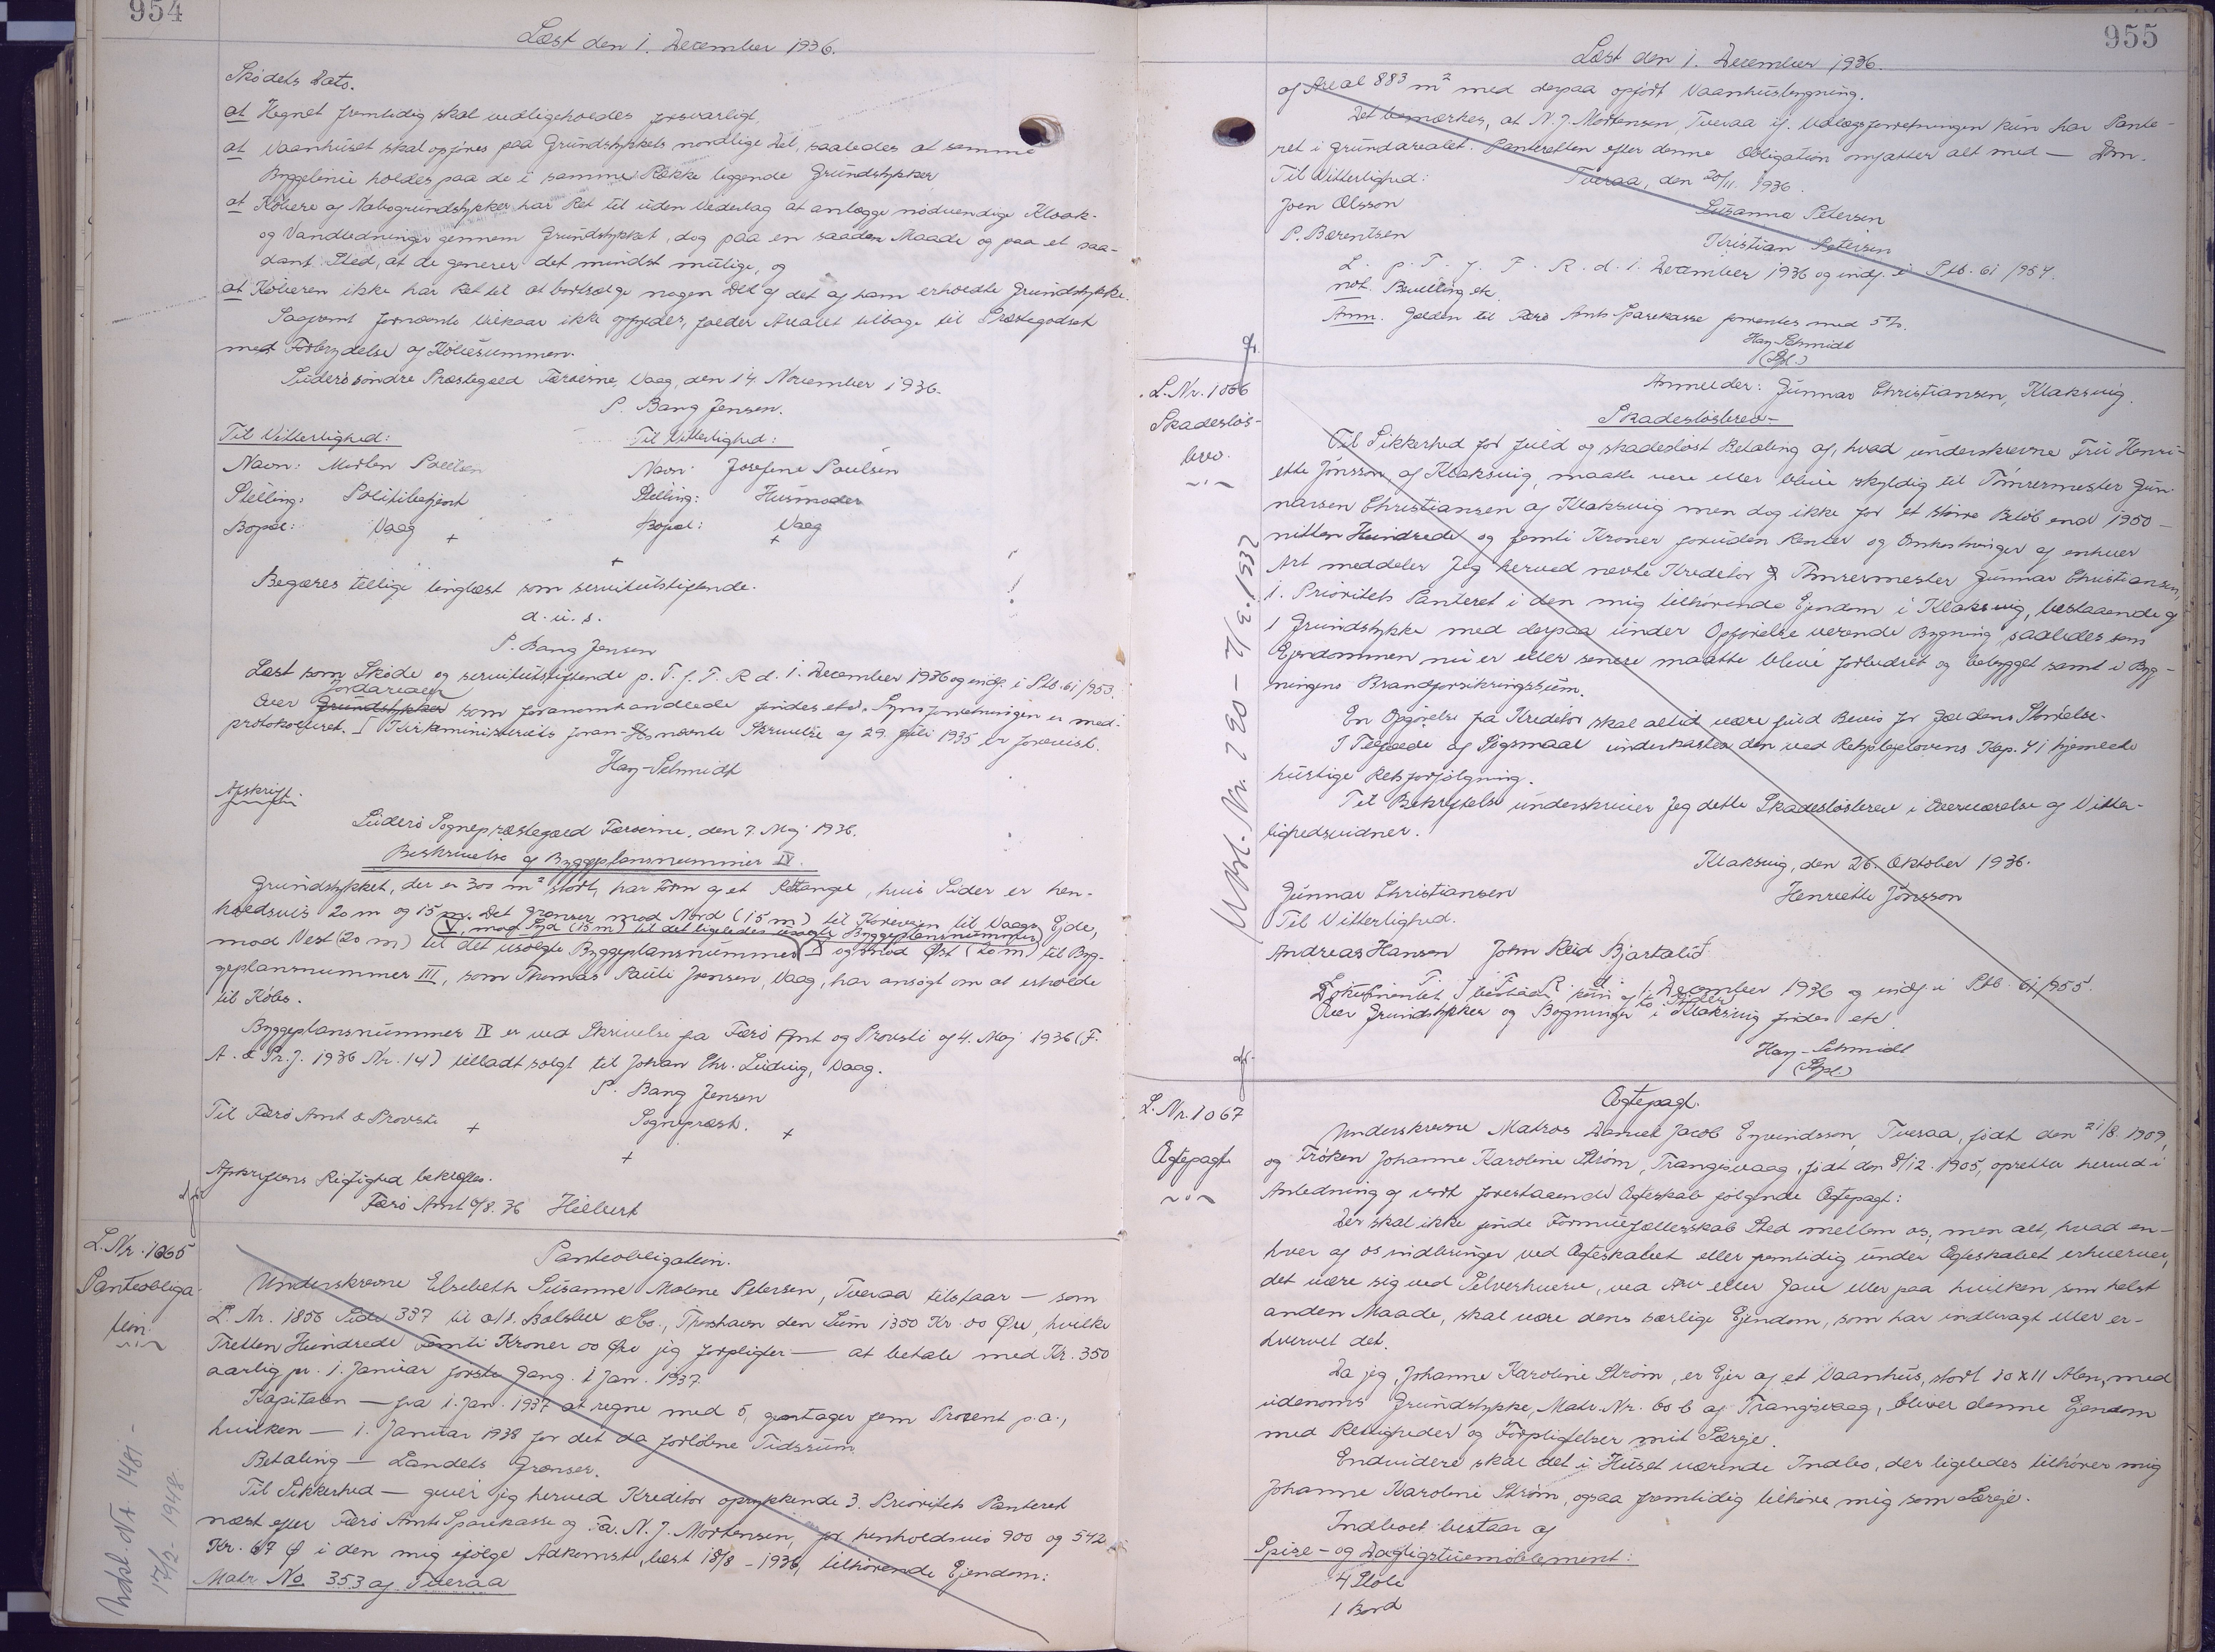 954
Læst den 1. December 1936.
Skødets Dato.
at Hegnet fremtidig skal vedligeholdes forsvarligt.
at Vaanhuset skal opføres paa Grundstykkets nordlige Del, saaledes at samme
Byggelinie holdes paa de i samme Række liggende Grundstykker
at Købere af Nabogrundstykker har Ret til uden Vederlag at anlægge nødvendige Kloak-
og Vandledninger gennem Grundstykket, dog paa en saadan Maade og paa et saa-
dant Sted, at de generer det mindst mulige, og
at Køberen ikke har Ret til at bortsælge nogen Del af det af ham erholdte Grundstykke.
Saafremt fornævnte Vilkaar ikke opfyldes, falder Arealet tilbage til Præstegodset
med Fortrydelse af Købesummen.
Suderø søndre Præstegæld Færøerne, Vaag, den 14. November 1936.
P. Bang Jensen.
Til Vitterlighed: Til Vitterlighed:
Navn: Morten Poulsen Navn: Josefine Poulsen
Stilling: Politibetjent Stilling: Husmoder
Bopæl: Vaag Bopæl: Vaag
Begæres tillige tinglæst som servitutstiftende.
d. u. s.
P. Bang Jensen
Læst som Skøde og servitutstiftende p. T. f. F. R. d. 1. December 1936 og indf. i Ptb. 61/953.
Jordarealer
Over Grundstykker som foranomhandlede findes etc. Synsforretningen er med-
protokolleret. I Kirkeministeriets foran-nævnte Skrivelse af 29. Juli 1935 er forevist.
Hay-Schmidt
Afskrift.
Suderø Sognepræstegæld Færøerne, den 7. Maj 1936.
Beskrivelse af Byggeplansnummer IV.
Grundstykket, der er 300 m² stort, har Form af et Rektangel, hvis Sider er hen-
holdsvis 20 m og 15 m. Det grænser mod Nord (15 m) til Køreveien til Vaags Ejde,
V, mod Syd (15 m) til det ligeledes usolgte Byggeplansnummer
mod Vest (20 m) til det usolgte Byggeplansnummer X og mod Øst (20 m) til Byg-
geplansnummer III, som Thomas Pauli Joensen, Vaag, har ansøgt om at erholde
til Købs.
Byggeplansnummer IV er ved Skrivelse fra Færø Amt og Provsti af 4. Maj 1936 (F.
A. & Pr. J. 1936 Nr. 14) tilladt solgt til Johan Chr. Ludvig, Vaag.
P. Bang Jensen
Til Færø Amt & Provsti Sognepræst.
Afskriftens Rigtighed bekræftes.
Færø Amt 6/8. 36 Hilbert
L. Nr. 1065
Panteobliga-
tion
Panteobligation.
Underskrevne Elsebeth Susanne Malene Petersen, Tveraa tilstaar — som
L. Nr. 1856 Side 337 til a/s. Balslev & Co., Thorshavn den Sum 1350 Kr. 00 Øre, hvilke
Tretten Hundrede Femti Kroner 00 Øre jeg forpligter — at betale med Kr. 350
aarlig pr. 1. Januar første Gang. 1 Jan. 1937.
Kapitalen — fra 1. Jan. 1937 at regne med 5, gentager fem Procent p.a.,
hvilken — 1. Januar 1938 for det da forløbne Tidsrum
Betaling — Landets Grænser.
Til Sikkerhed — giver jeg herved Kreditor oprykkende 3. Prioritets Panteret
næst efter Færø Amts Sparekasse og Fa. N. J. Mortensen, for henholdsvis 900 og 542
Kr. 67 Ø i den mig ifølge Adkomst, læst 18/8 - 1936, tilhørende Ejendom:
Matr No 353 af Tveraa
Udsl. Nr 1481 -
17/12- 1948.
955
Læst den 1. December 1936.
af Areal 883 m² med derpaa opført Vaanhusbygning.
Det bemærkes, at N. J. Mortensen, Tveraa if. Udlægsforretningen kun har Pante-
ret i Grundarealet. Panteretten efter denne Obligation omfatter alt med — Dom.
Til Vitterlighed: Tveraa, den 20/11. 1936.
Joen Olsson Susanna Petersen
P. Bærentsen Kristian Petersen
L. p. T. f. F. R. d. 1. December 1936 og indf. i Ptb. 61/954.
not. Bevilling etc.
Anm. Gælden til Færø Amts Sparekasse forrentes med 5%.
Hay-Schmidt
L. Nr. 1066
Skadesløs-
brev.
Udsl. Nr. 230 - 2/3. 1937
Anmelder: Gunnar Christiansen, Klaksvig.
Skadesløsbrev
Til Sikkerhed for fuld og skadesløst Betaling af, hvad underskrevne Fru Henri-
ette Jónsson, af Klaksvig, maatte være eller blive skyldig til Tømrermester Gun-
narsen Christiansen af Klaksvig men dog ikke for et større Beløb end 1950 —
nitten Hundrede og femti Kroner foruden Renter og Omkostninger af enhver
Art meddeler Jeg herved nævte Kreditor Tømrermester Gunnar Christiansen,
1. Prioritets Panteret i den mig tilhørende Ejendom i Klaksvig, bestaaende af
1 Grundstykke med derpaa under Opførelse værende Bygning saaledes som
Ejendommen nu er eller senere maatte blive forbedret og bebygget samt i Byg-
ningens Brandforsikringssum.
En Opgørelse fra Kreditor skal altid være fuld Bevis for Gældens Størrelse.
I Tilfælde af Søgsmaal underkastes den ved Retsplejelovens Kap. 41 hjemlede
hurtige Retsforfølgning.
Til Bekræftelse underskriver Jeg dette Skadesløsbrev i Overværelse af Vitter-
lighedsvidner.
Klaksvig, den 26. Oktober 1936.
Gunnar Christiansen Henriette Jónsson
Til Vitterlighed.
Andreas Hansen John Reid Bjartalið
L. p. T. f. F. R. d. 1. December 1936 og indf. i Ptb. 61/955.
Over Grundstykker og Bygninger i Klaksvig findes etc.
Hay-Schmidt
L. Nr. 1067
Ægtepagt
Ægtepagt.
Underskrevne Matros Daniel Jacob Eyvindsson, Tveraa, født den 21/8. 1909,
og Frøken Johanne Karoline Strøm, Trangisvaag, født den 8/12. 1905, opretter herved i
Anledning af vort forestaaende Ægteskab følgende Ægtepagt:
Der skal ikke finde Formuefællesskab Sted mellem os, men alt, hvad en-
hver af os indbringer ved Ægteskabet eller fremtidig under Ægteskabet erhverver,
det være sig ved Selverhverv, ved Arv eller Gave eller paa hvilken som helst
anden Maade, skal være dens særlige Ejendom, som har indbragt eller er-
hvervet det.
Da jeg, Johanne Karoline Strøm, er Ejer af et Vaanhus, stort 10 x 11 Alen, med
udenoms Grundstykke, Matr. Nr. 60 b af Trangisvaag, bliver denne Ejendom
med Rettigheder og Forpligtelser mit Særeje.
Endvidere skal det i Huset værende Indbo, der ligeledes tilhører mig
Johanne Karoline Strøm, ogsaa fremtidig tilhøre mig som Særeje.
Indboet bestaar af
Spise- og Dagligstuemøblement:
4 Stole
1 Bord